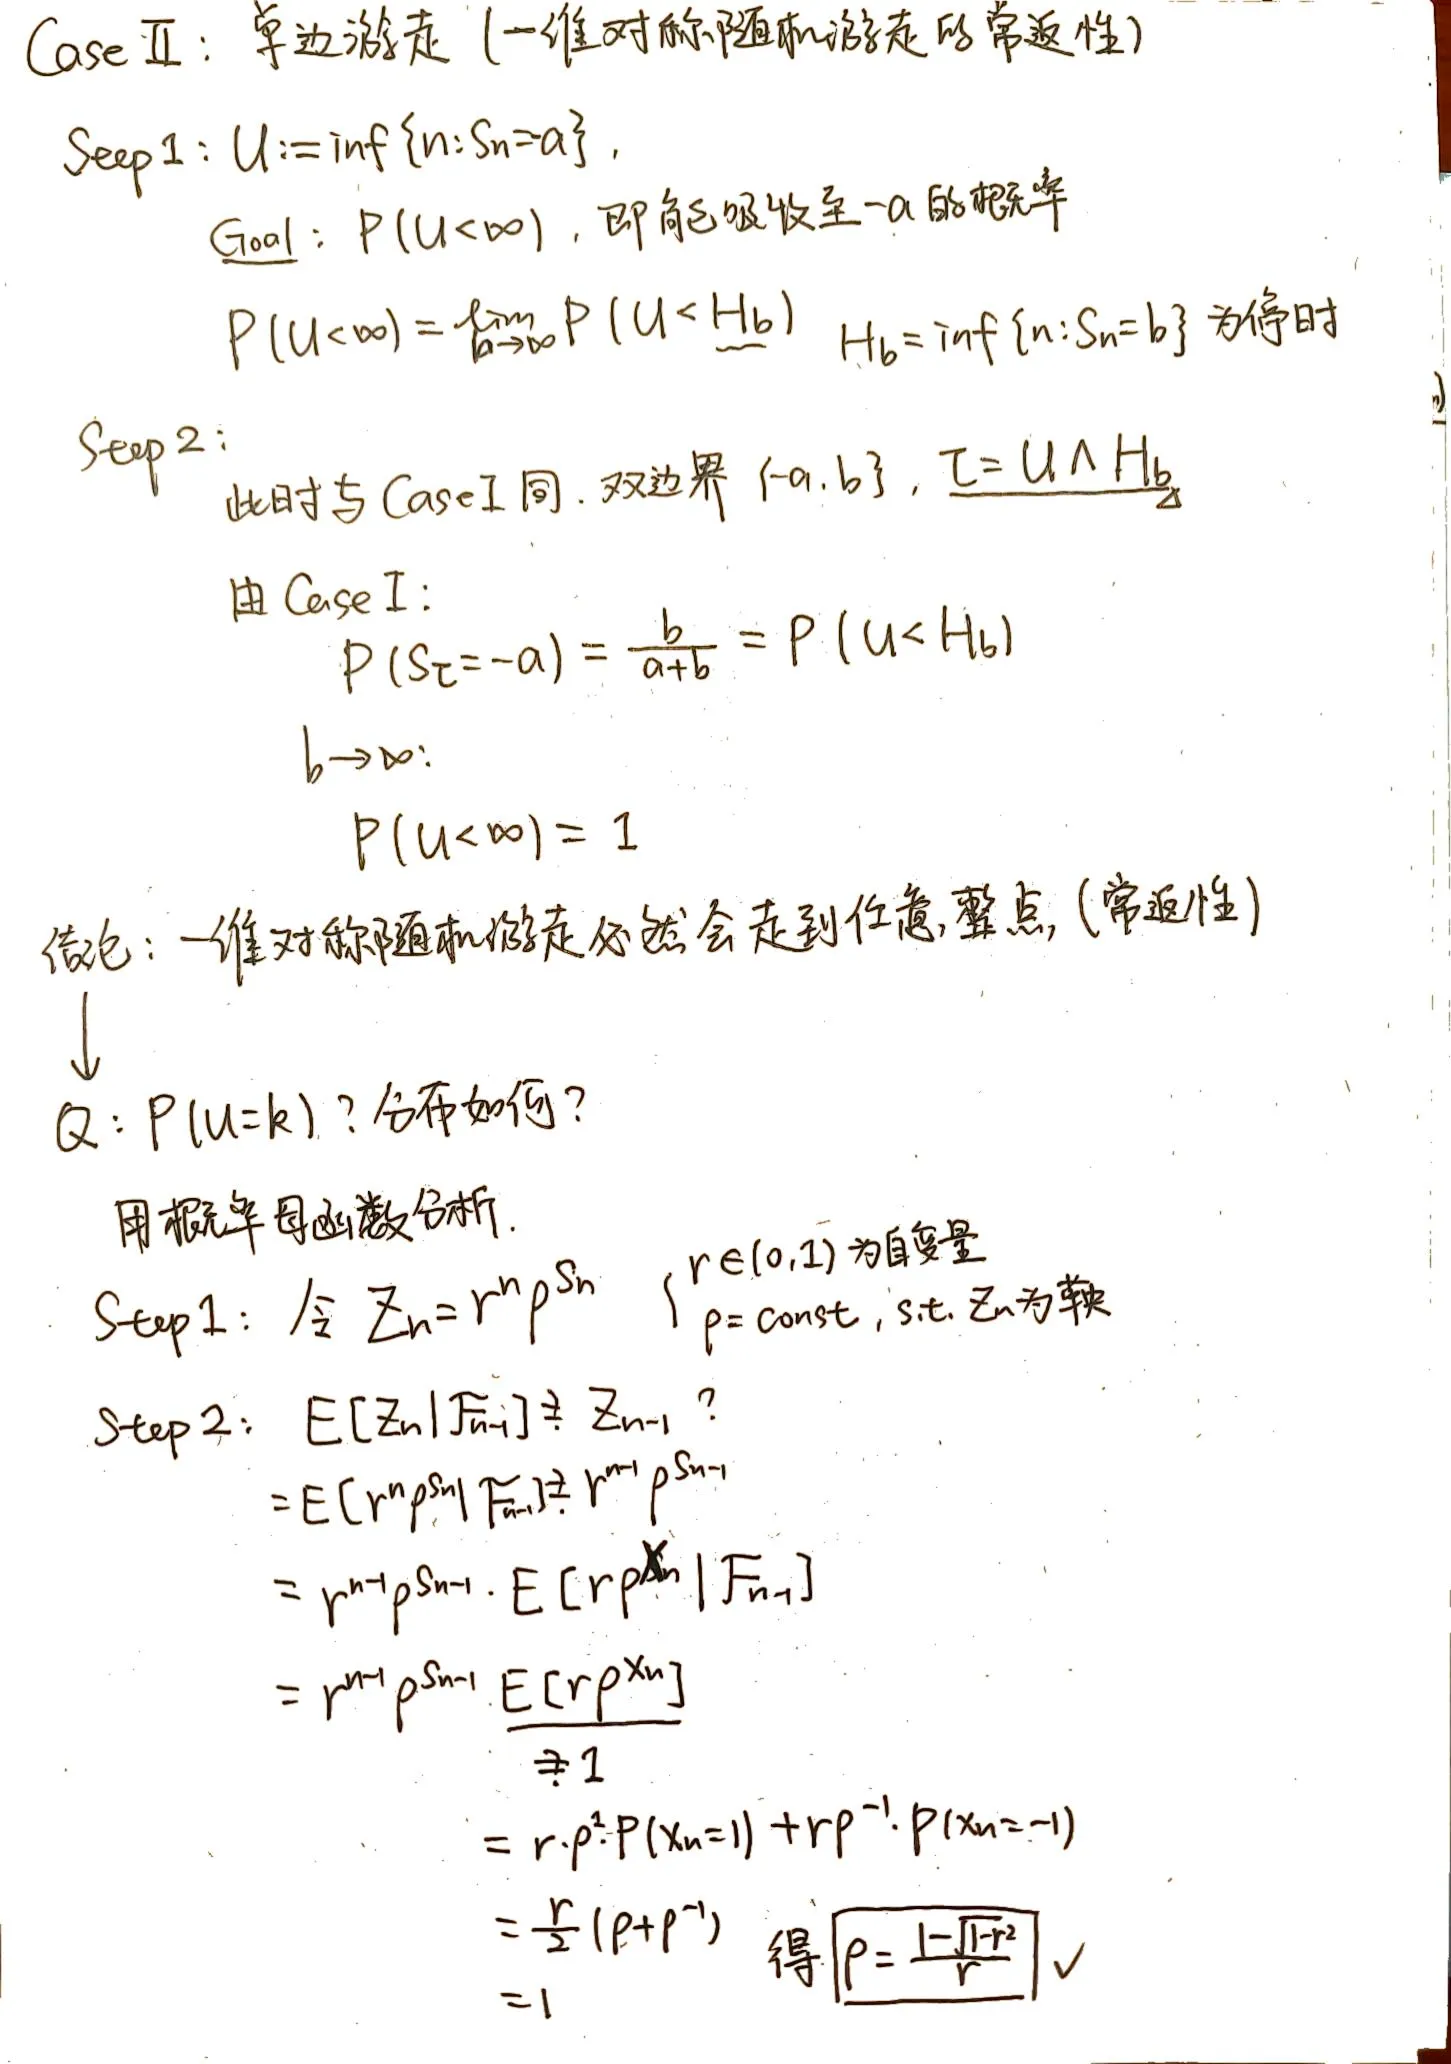 Case Ⅱ: 单边游走 (一维对称随机游走的常返性)
Seep1: U:=inf{n:Sn=a},
Goal: P(U<∞), 即能吸收至-a的概率
P(U<∞)=lim b→∞ P(U<Hb) Hb=inf{n:Sn=b}为停时
Step2:
此时与CaseⅠ同. 双边界{-a.b}, τ=U∧Hb
由CaseⅠ:
P(Sτ=-a)=b/(a+b)=P(U<Hb)
b→∞:
P(U<∞)=1
结论: 一维对称随机游走必然会走到任意整点, (常返性)
↓
Q: P(U=k)? 分布如何?
用概率母函数分析.
Step1: 令 Zn=r^n ρ^Sn { r∈(0,1)为自变量
ρ=const, s.t. Zn为鞅
Step2: E[Zn|Fn-1] ≟ Zn-1 ?
=E[r^n ρ^Sn|Fn-1] ≟ r^n-1 ρ^Sn-1
= r^n-1 ρ^Sn-1 · E[rρ^Xn|Fn-1]
= r^n-1 ρ^Sn-1 · E[rρ^Xn]
≟1
= r·ρ^1·P(Xn=1)+rρ^-1·P(Xn=-1)
= r/2 (ρ+ρ^-1) 得 ρ=(1-√(1-r²))/r ✓
=1